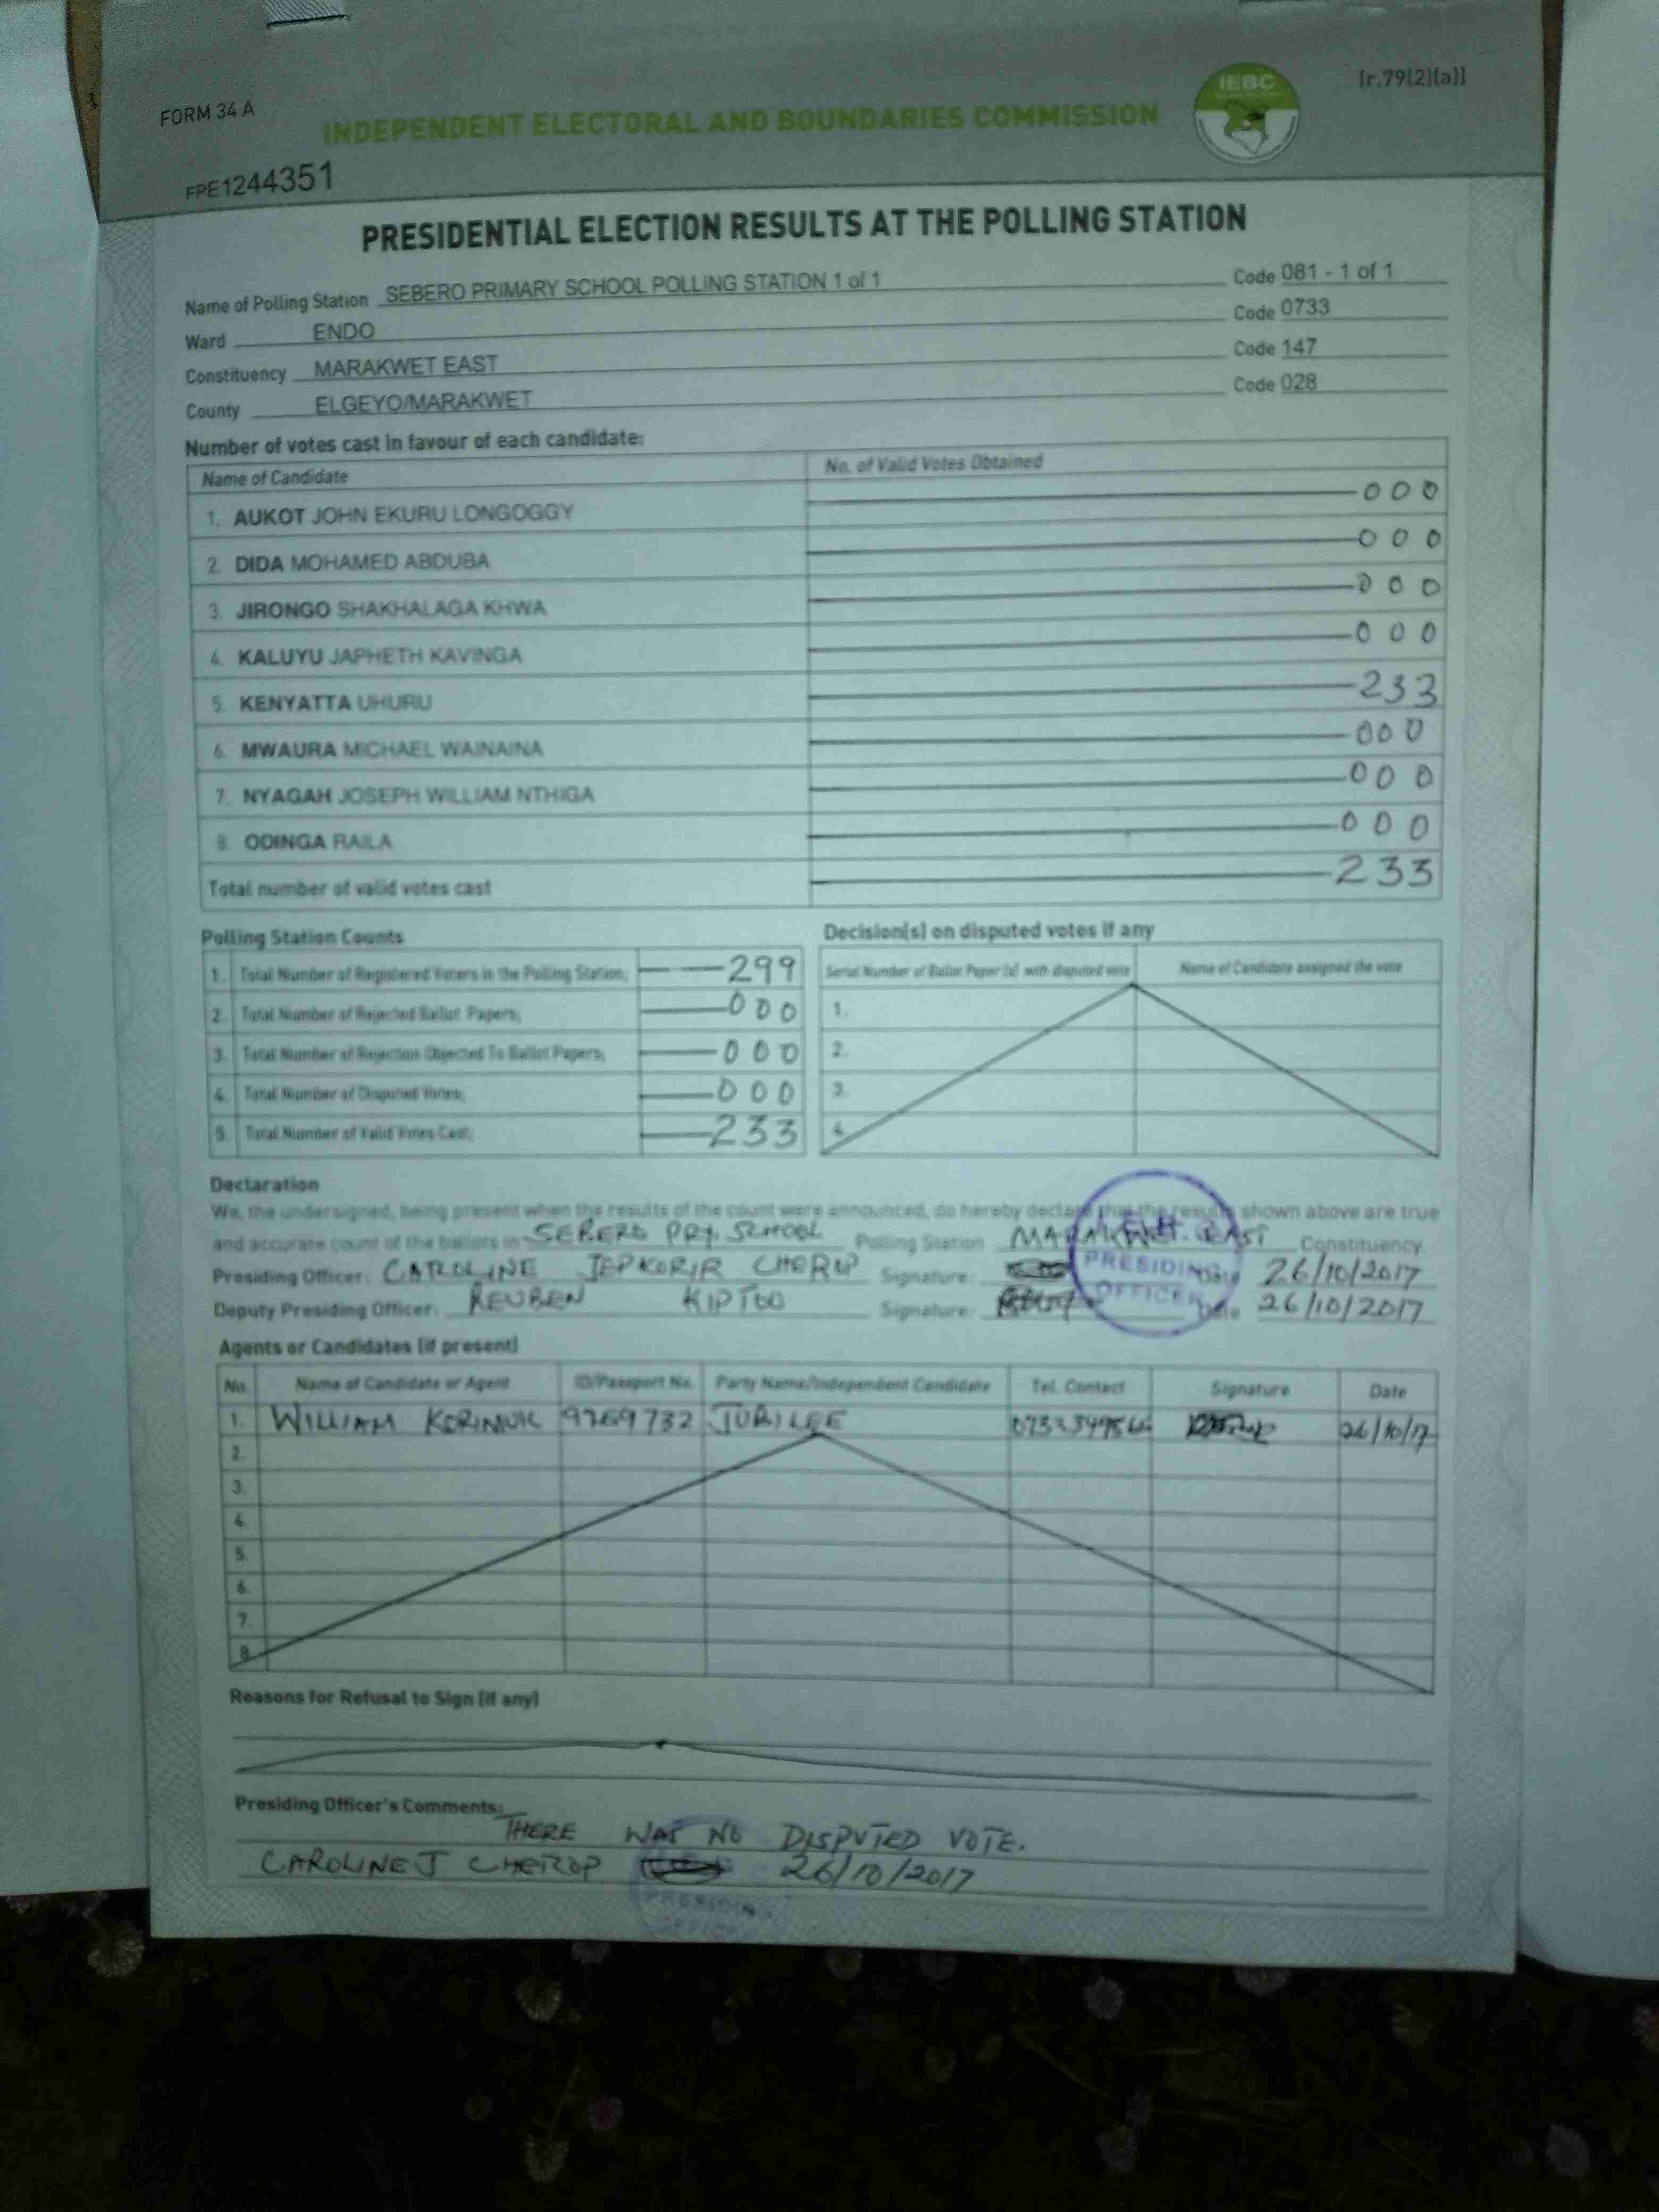 FORM 34 A
INDEPENDENT ELECTORAL AND BOUNDARIES COMMISSION
IEBC
(r.79(2)(a))
FPE1244351
PRESIDENTIAL ELECTION RESULTS AT THE POLLING STATION
Name of Polling Station SEBERO PRIMARY SCHOOL POLLING STATION 1 of 1 Code 081 - 1 of 1
Ward ENDO Code 0733
Constituency MARAKWET EAST Code 147
County ELGEYO/MARAKWET Code 028
Number of votes cast in favour of each candidate:
Name of Candidate No. of Valid Votes Obtained
1. AUKOT JOHN EKURU LONGOGGY 000
2. DIDA MOHAMED ABDUBA 000
3. JIRONGO SHAKHALAGA KHWA 000
4. KALUYU JAPHETH KAVINGA 000
5. KENYATTA UHURU 233
6. MWAURA MICHAEL WAINAINA 000
7. NYAGAH JOSEPH WILLIAM NTHIGA 000
8. ODINGA RAILA 000
Total number of valid votes cast 233
Polling Station Counts
1. Total Number of Registered Voters in the Polling Station; 299
2. Total Number of Rejected Ballot Papers; 000
3. Total Number of Rejection Objected To Ballot Papers; 000
4. Total Number of Disputed Votes; 000
5. Total Number of Valid Votes Cast; 233
Decision(s) on disputed votes if any
Serial Number of Ballot Paper (s) with disputed vote Name of Candidate assigned the vote
1.
2.
3.
4.
Declaration
We, the undersigned, being present when the results of the count were announced, do hereby declare that the results shown above are true
and accurate count of the ballots in SEBERO PRY. SCHOOL Polling Station MARAKWET EAST Constituency
Presiding Officer: CAROLINE JEPKORIR CHEROP Signature: Date 26/10/2017
Deputy Presiding Officer: REUBEN KIPTOO Signature: Date 26/10/2017
PRESIDING
OFFICER
Agents or Candidates (if present)
No. Name of Candidate or Agent ID/Passport No. Party Name/Independent Candidate Tel. Contact Signature Date
1. WILLIAM 9769732 JUBILEE 26/10/17
2.
3.
4.
5.
6.
7.
8.
Reasons for Refusal to Sign (if any)
Presiding Officer's Comments:
THERE WAS NO DISPUTED VOTE.
CAROLINE J CHEROP 26/10/2017
PRESIDING
OFFICER